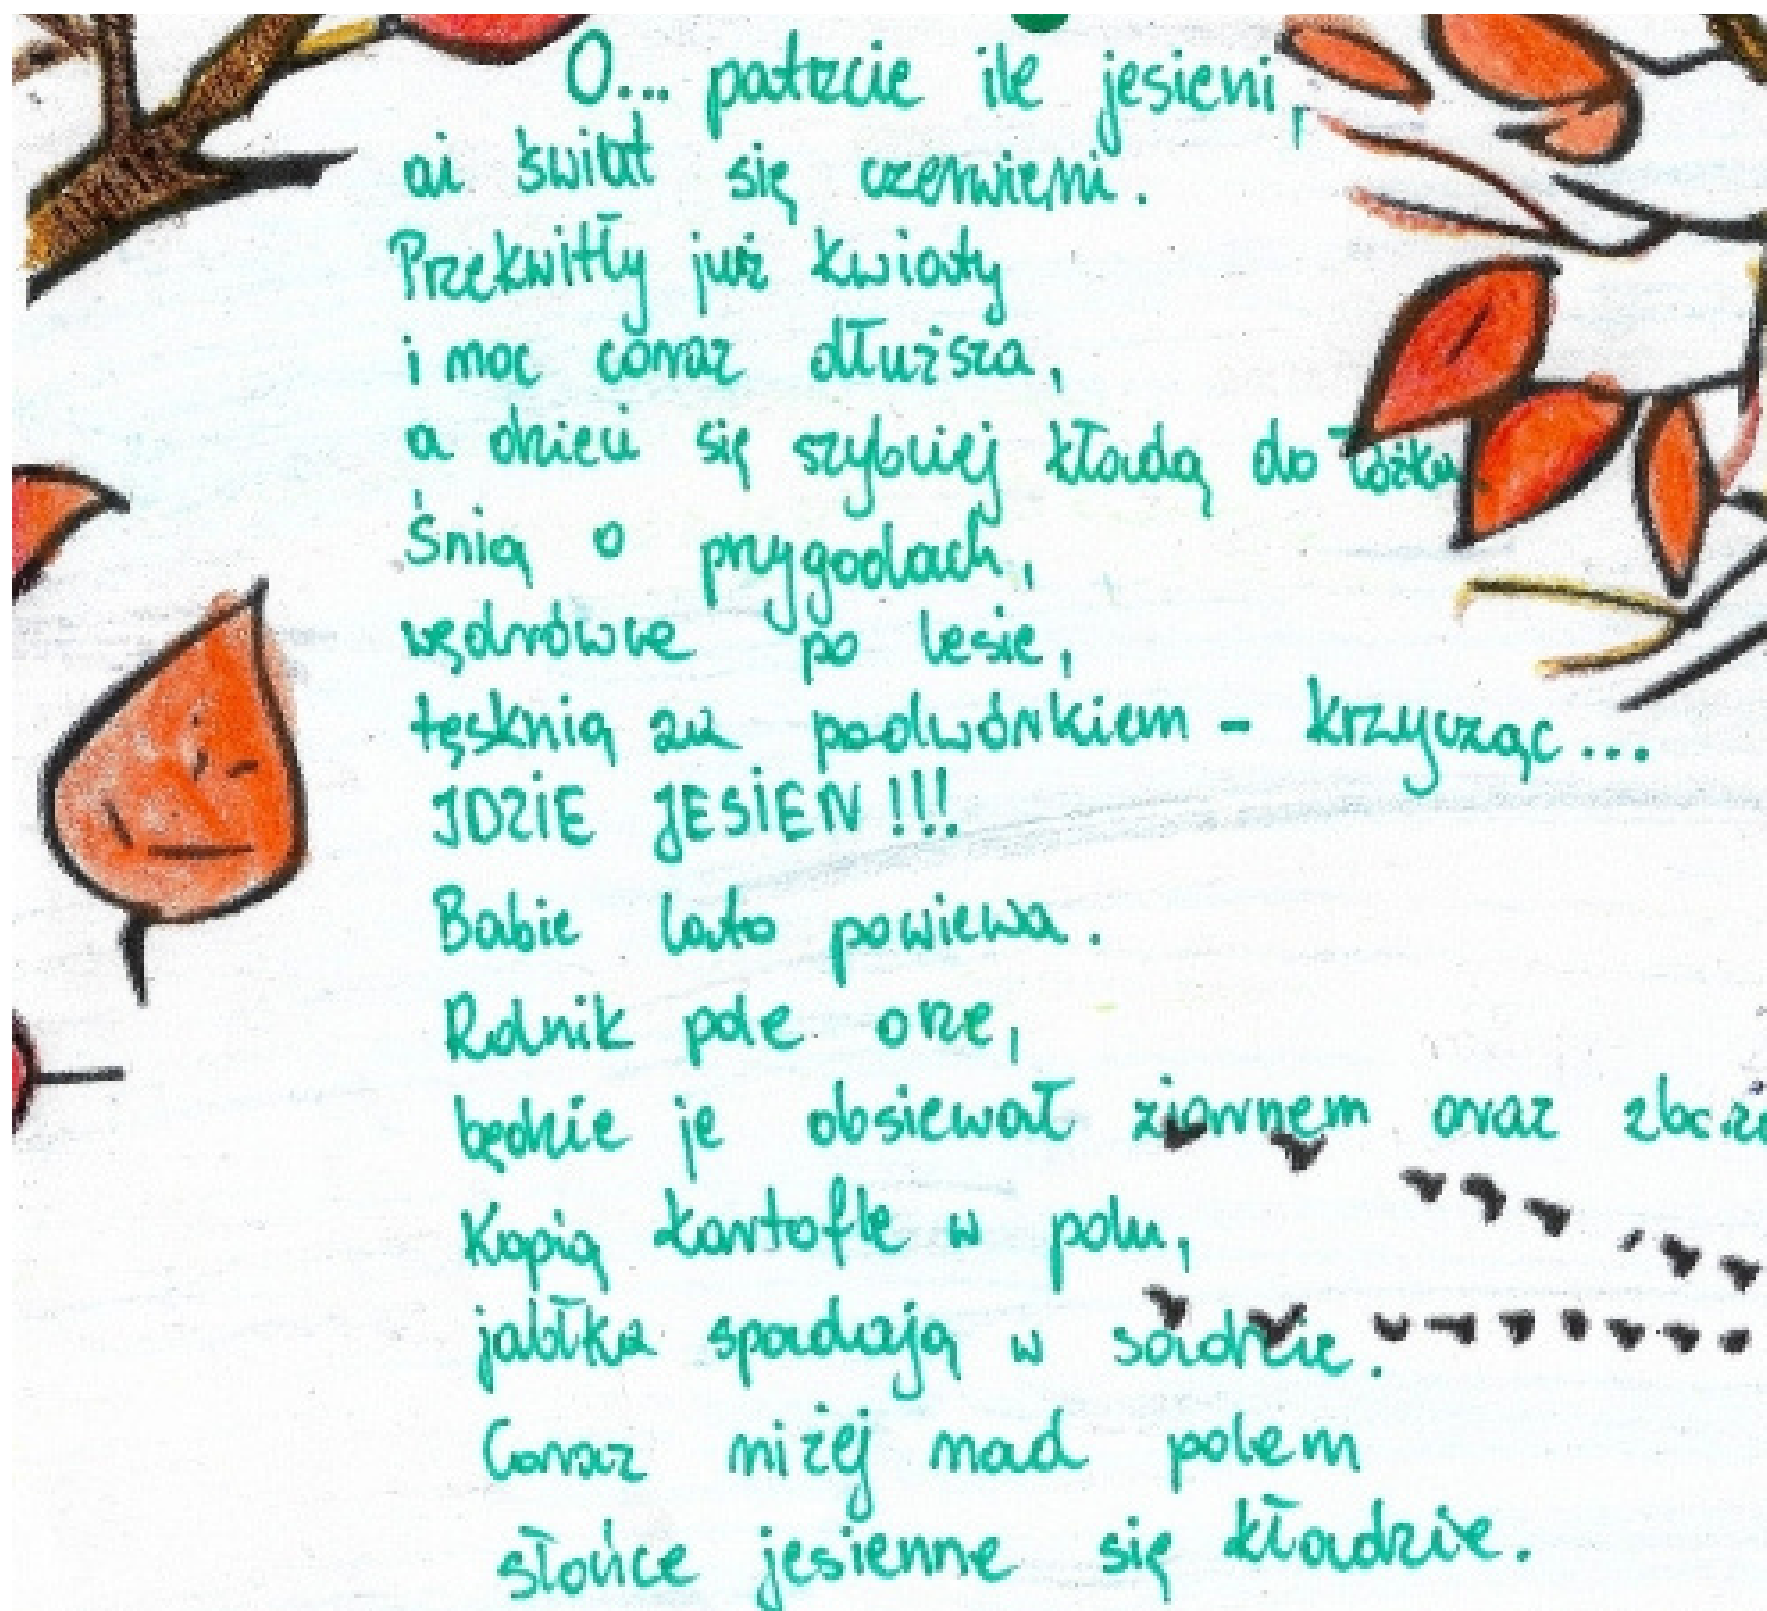 O... patrzcie ile jesieni,
aż świat się czerwieni.
Przekwitły już kwiaty
i noc coraz dłuższa,
a dzieci się szybciej kładą do łóżka.
Śnią o przygodach,
wędrówce po lesie,
tęsknią za podwórkiem - krzycząc...
IDZIE JESIEŃ!!!
Babie lato powiewa.
Rolnik pole orze,
będzie je obsiewał ziarnem oraz
Kopią kartofle w polu,
jabłka spadają w sadzie.
Coraz niżej nad polem
słońce jesienne się kładzie.